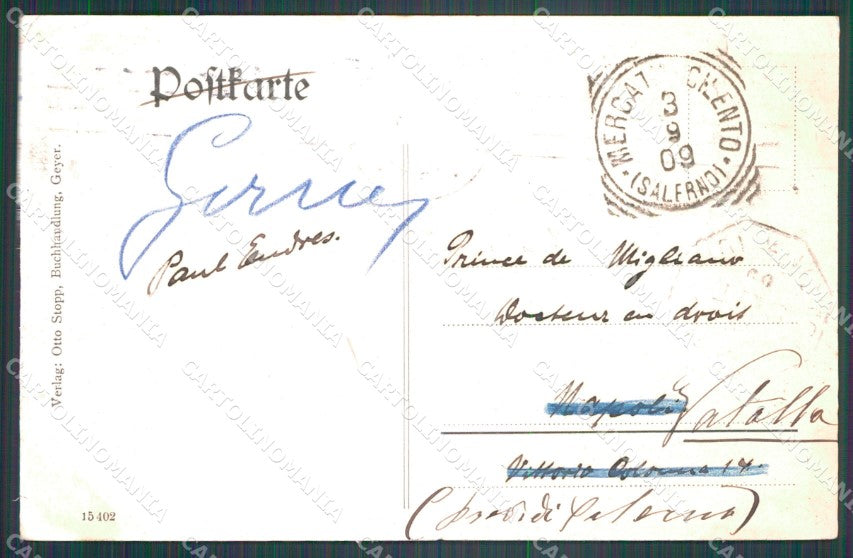 Postkarte
MERCAT CILENTO
3
9
09
(SALERNO)
Paul Endres.
Prince de Migliano
Docteur en droit
Napoli
Vittoria Colonna 14.
(
Salerno)
Verlag: Otto Stopp, Buchhandlung, Geyer.
15402
CARTOLINOMANIA